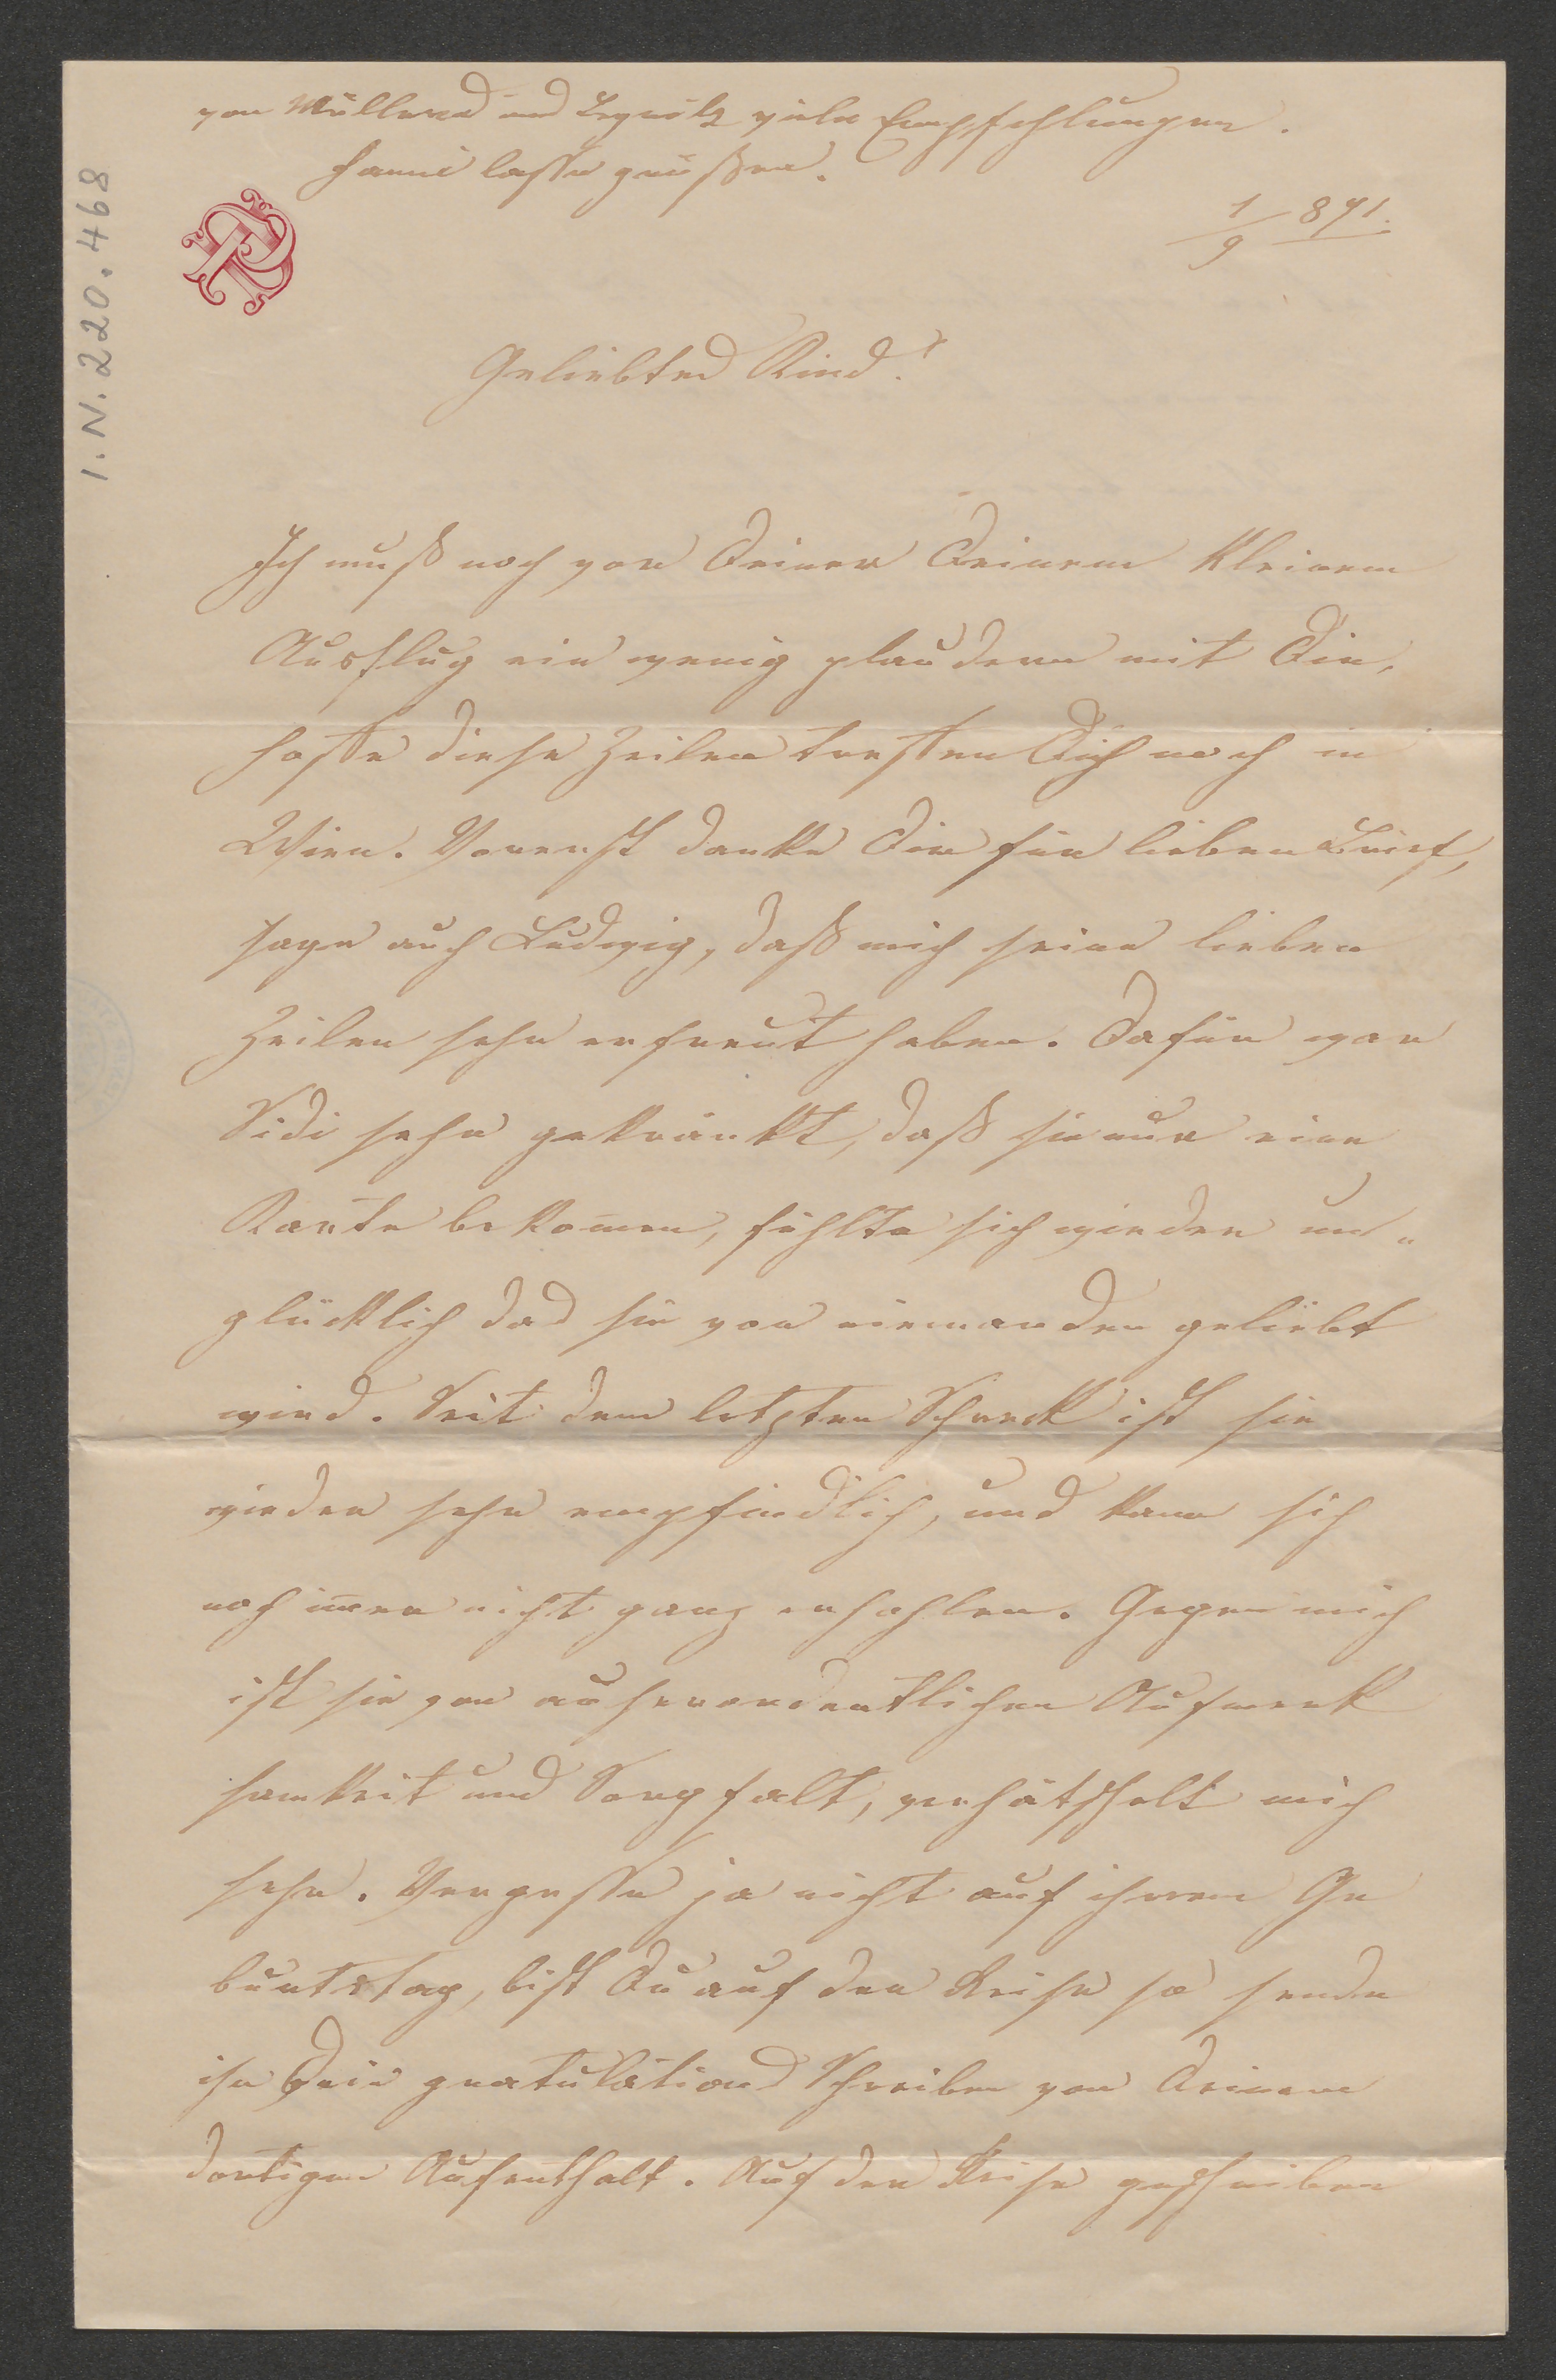 von Müllers und viele Empfehlungen.
Fanni lasse grüßen.
1/9 871.
I.N. 220.468
Geliebtes Kind!
Ich muß noch vor Deiner Deinem kleinem
Ausflug ein wenig plaudern mit Dir,
hoffe diese Zeilen treffen Dich noch in
Wien. Vorerst danke Dir für lieben Brief,
sage auch Ludwig, daß mich seine lieben
Zeilen sehr erfreut haben. Dafür war
Sidi sehr gekränkt, daß sie nur eine
Karte bekom̄en, fühlte sich wieder un„
glücklich das sie von niemanden geliebt
wird. Seit dem letzten Schreck ist sie
wieder sehr empfindlich, und kann sich
noch im̄er nicht ganz erhohlen. Gegen mich
ist sie von auserordentlicher Aufmerk
samkeit und Sorgfalt, verhätschelt mich
sehr. Vergesse ja nicht auf ihrem Ge
burtstag, bist Du auf der Reise so sende
ihr Dein gratulations Schreiben von Deinem
dortigen Aufenthalt. Auf der Reise geschrieben